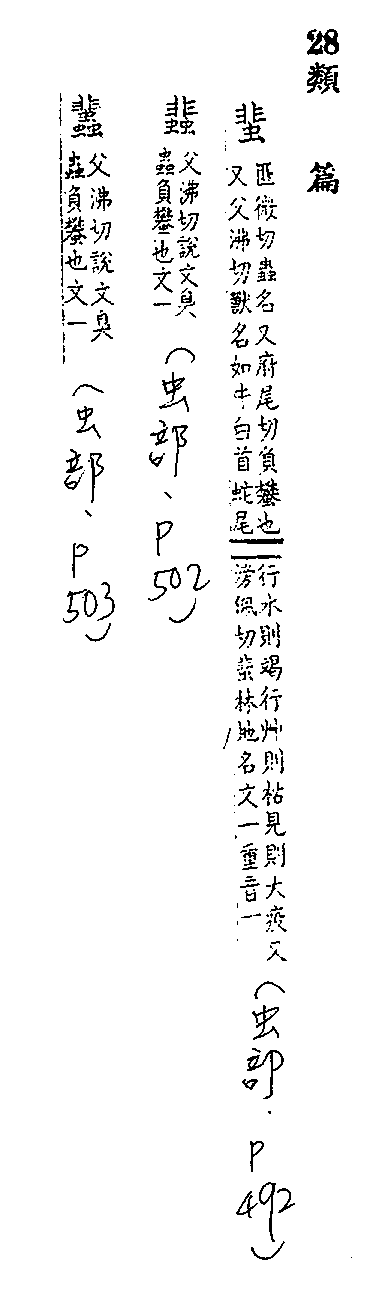 28類篇
蜚
匪微切蟲名又府尾切負蠜也
又父沸切獸名如牛白首蛇尾
行水則竭行艸則枯見則大疫又
滂佩切蜚林地名文一重音一
(虫部、P492)
蜚
父沸切說文臭
蟲負蠜也文一
(虫部、P502)
蠹
父沸切說文臭
蟲負蠜也文一
(虫部、P503)